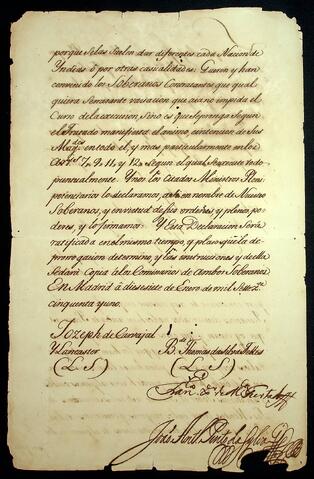 porque se las suelen dar diferentes cada Nacion de
Yndias ô por otras casualidades: Queren y han
convenido los Soberanos Contratantes que qual
quiera Semejante variacion que acaso impida el
Curso de la execucion, sino es que se prosiga segun
el Tratado manifiesta el animo e intencion de sus
Mag.des en todo el, y mas particularmente en los
Art.os 7, 9, 11, y 12, segun el qual se execute todo
puntualmente. Y nos los citados Ministros Pleni
potenciarios lo declaramos, en nombre de Nuestros
Soberanos, y en virtud de sus ordenes y plenos po
deres, y lo formamos. Y esta Declaracion sera
ratificada en el mismo tiempo, y plazo que la de
prorrogacion de termino, y las instrucciones y de ella
se dará Copia a los Comisarios de ambos Soberanos
En Madrid â diesisiete de Enero de mil sett.os
cinquenta y uno.
Jozeph de Carvajal
y Lancaster
(L. S.)
Thomas da Silva Telles
(L. S.)